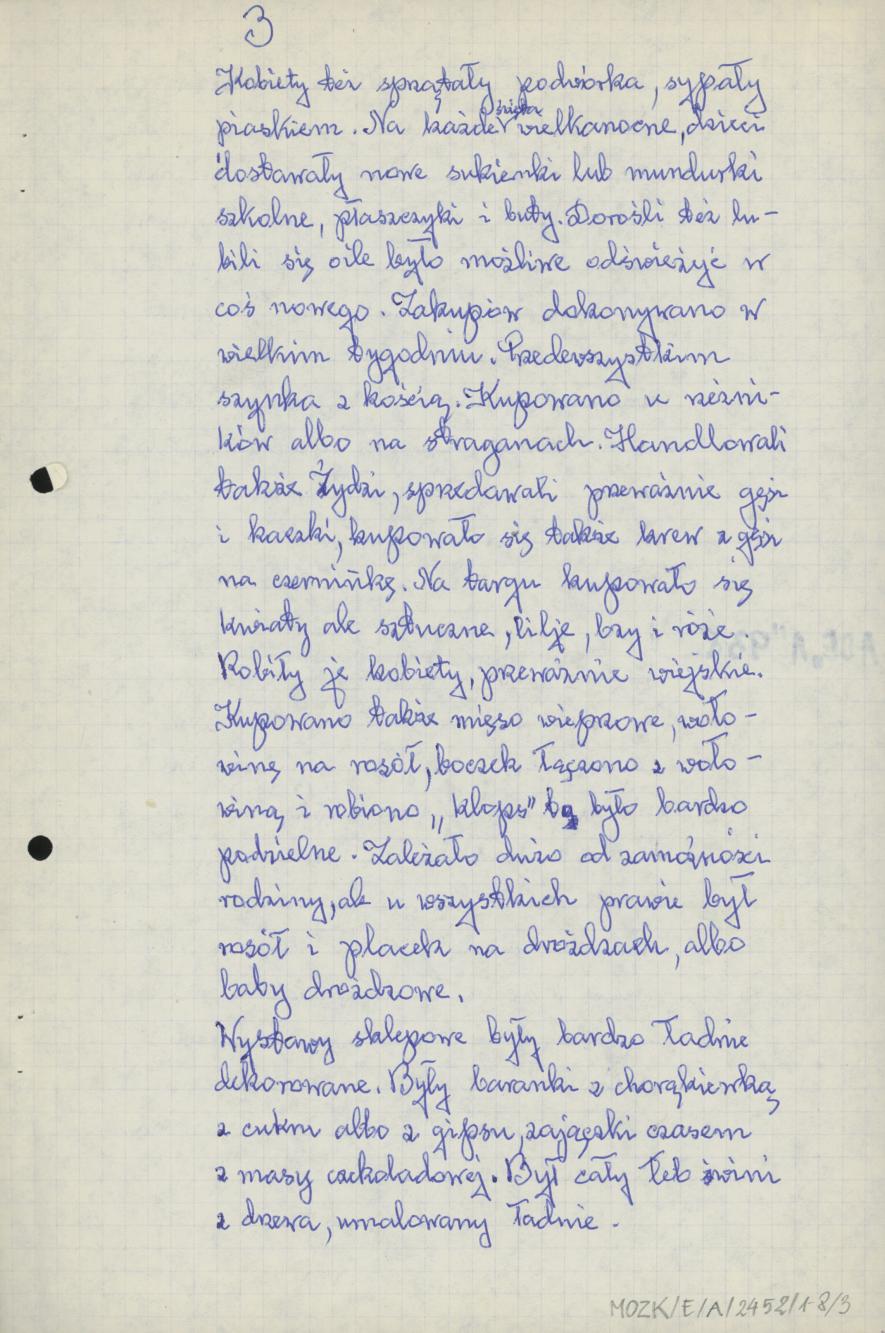 3
Kobiety też sprzątały podwórka, sypały
piaskiem. Na każde święta wielkanocne, dzieci
dostawały nowe sukienki lub mundurki
szkolne, płaszczyki i buty. Dorośli też lu-
bili się oile było możliwe odświeżyć w
coś nowego. Zakupów dokonywano w
wielkim tygodniu. Przedewszystkim
szynka z kością. Kupowano u rzeźni-
ków albo na straganach. Handlowali
także Żydzi, sprzedawali przeważnie gęsi
i kaczki, kupowało się także krew z gęsi
na czerninkę. Na targu kupowało się
kwiaty ale sztuczne, lilje, bzy i róże.
Robiły je kobiety, przeważnie wiejskie.
Kupowano także mięso wieprzowe, woło-
winę na rosół, boczek łączono z woło-
winą i robiono „klops" było bardzo
podzielne. Zależało dużo od zamożności
rodziny, ale u wszystkich prawie był
rosół i placek na drożdzach, albo
baby drożdzowe.
Wystawy sklepowe były bardzo ładnie
dekorowane. Były baranki z chorągiewką
z cukru albo z gipsu, zajączki czasem
z masy czekoladowej. Był cały łeb świni
z drzewa, umalowany ładnie.
MOZK/E/A/2452/1-8/3